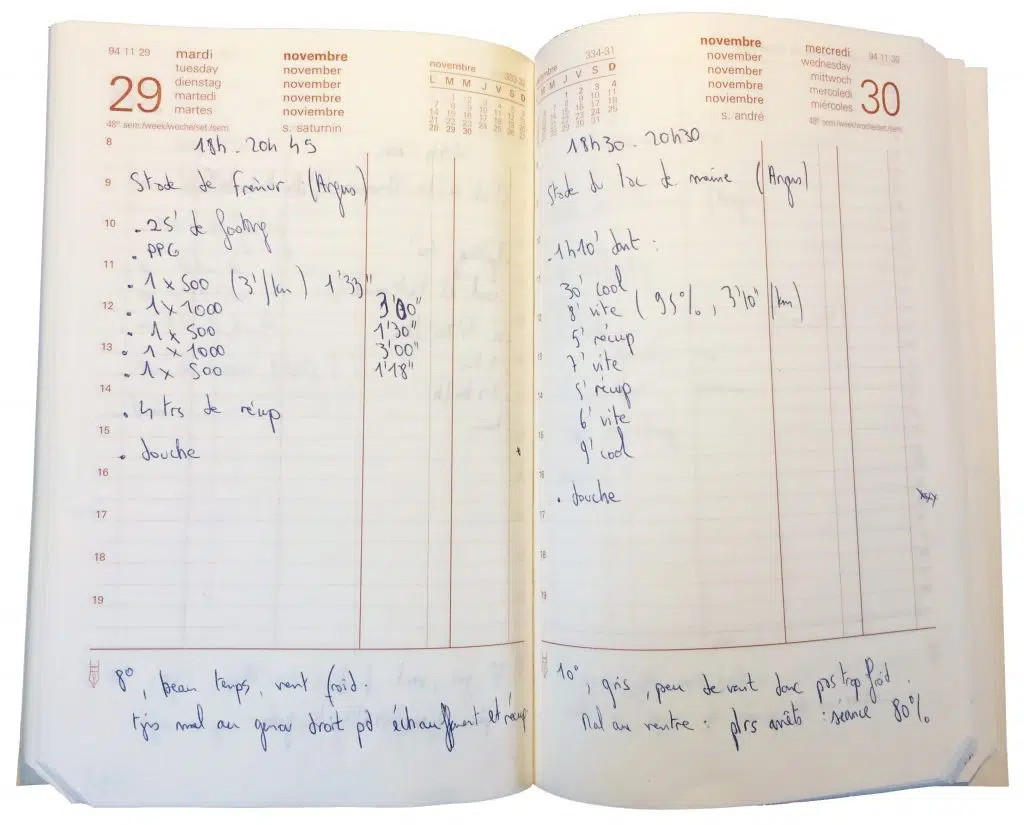 94 11 29 mardi novembre
tuesday november
29 dienstag november
martedi novembre
martes noviembre
48e sem./week/woche/set./sem. s. saturnin
novembre
L M M J V S D
1 2 3 4 5 6
7 8 9 10 11 12 13
14 15 16 17 18 19 20
21 22 23 24 25 26 27
28 29 30
8 18h - 20h 45
9 Stade de frémur (Angers)
10 . 25' de footing
. PPG
11
. 1 x 500 (3'/km) 1'33"
12 . 1 x 1000 3'00"
. 1 x 500 1'30"
13 . 1 x 1000 3'00"
. 1 x 500 1'18"
14
. 4 trs de récup
15
. douche
16
17
18
19
8°, beau temps, vent froid.
tjs mal au genou droit pd échauffement et récup
334-31 novembre mercredi 94 11 30
november wednesday
november mittwoch 30
novembre mercoledi
noviembre miércoles
s. andré 48e sem./week/woche/set./sem.
J V S D
18h30 - 20h30
Stade du lac de maine (Angers)
- 1h10' dont :
30' cool
8' vite (95%, 3'10"/km)
5' récup
7' vite
5' récup
6' vite
9' cool
. douche
10°, gris, peu de vent donc pas trop froid.
Mal au ventre : plrs arrêts : séance 80%